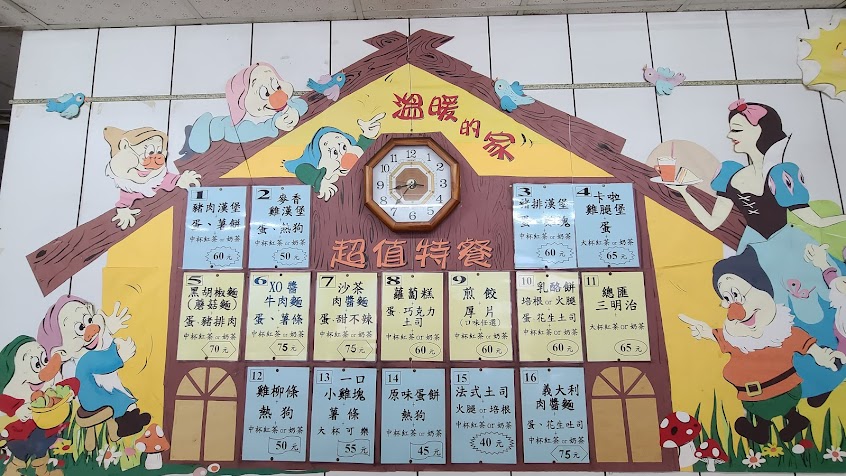 溫暖的家
12
1
2
3
4
5
6
7
8
9
10
11
超值特餐
1
豬肉漢堡
蛋、薯餅
中杯紅茶or奶茶
60元
2
麥香
雞漢堡
蛋、熱狗
中杯紅茶or奶茶
50元
3
豬排漢堡
中杯紅茶or奶茶
60元
4
卡啦
雞腿堡
蛋
大杯紅茶or奶茶
65元
5
黑胡椒麵
(蘑菇麵)
蛋·豬排肉
中杯紅茶or奶茶
70元
6
XO醬
牛肉麵
蛋、薯條
中杯紅茶or奶茶
75元
7
沙茶
肉醬麵
蛋·甜不辣
中杯紅茶or奶茶
75元
8
蘿蔔糕
蛋·巧克力
土司
中杯紅茶or奶茶
60元
9
煎餃
厚片
(口味任選)
中杯紅茶or奶茶
60元
10
乳酪餅
培根or火腿
蛋·花生土司
中杯紅茶or奶茶
60元
11
總匯
三明治
大杯紅茶or奶茶
65元
12
雞柳條
熱狗
中杯紅茶or奶茶
50元
13
一口
小雞塊
薯條
大杯可樂
55元
14
原味蛋餅
熱狗
中杯紅茶or奶茶
45元
15
法式土司
火腿or培根
中杯紅茶or奶茶
40元
16
義大利
肉醬麵
蛋、花生吐司
中杯紅茶or奶茶
75元